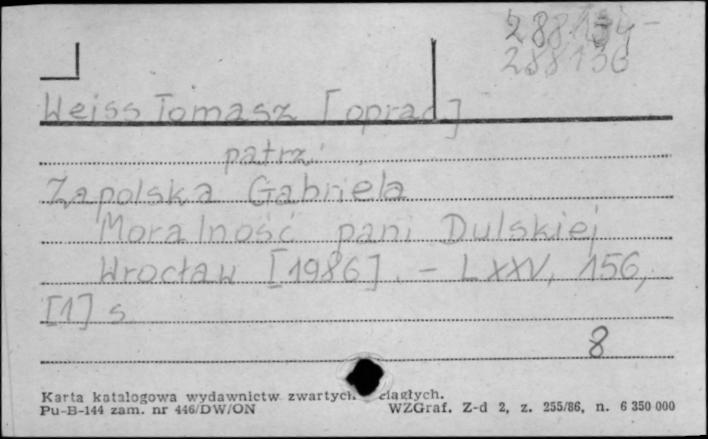 288134-
288136
Weiss Tomasz [oprac]
patrz:
Zapolska Gabriela
Moralność pani Dulskiej
Wrocław [1986]. - LXXV, 156,
[1] s.
8
Karta katalogowa wydawnictw zwartych ciągłych.
Pu-B-144 zam. nr 446/DW/ON WZGraf. Z-d 2, z. 255/86, n. 6 350 000